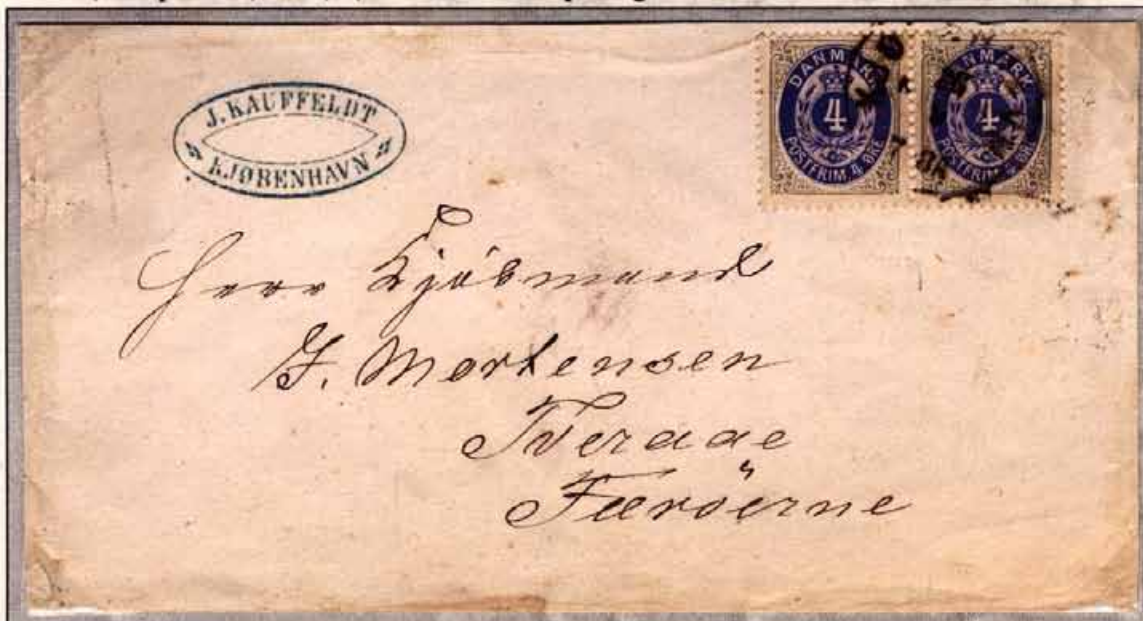 J. KAUFFELDT
KJØBENHAVN
DANMARK
4
POSTFRIM. 4 ØRE
DANMARK
4
POSTFRIM. 4 ØRE
Herr Kjöbmand
J. Mortensen
Tveraae
Færöerne